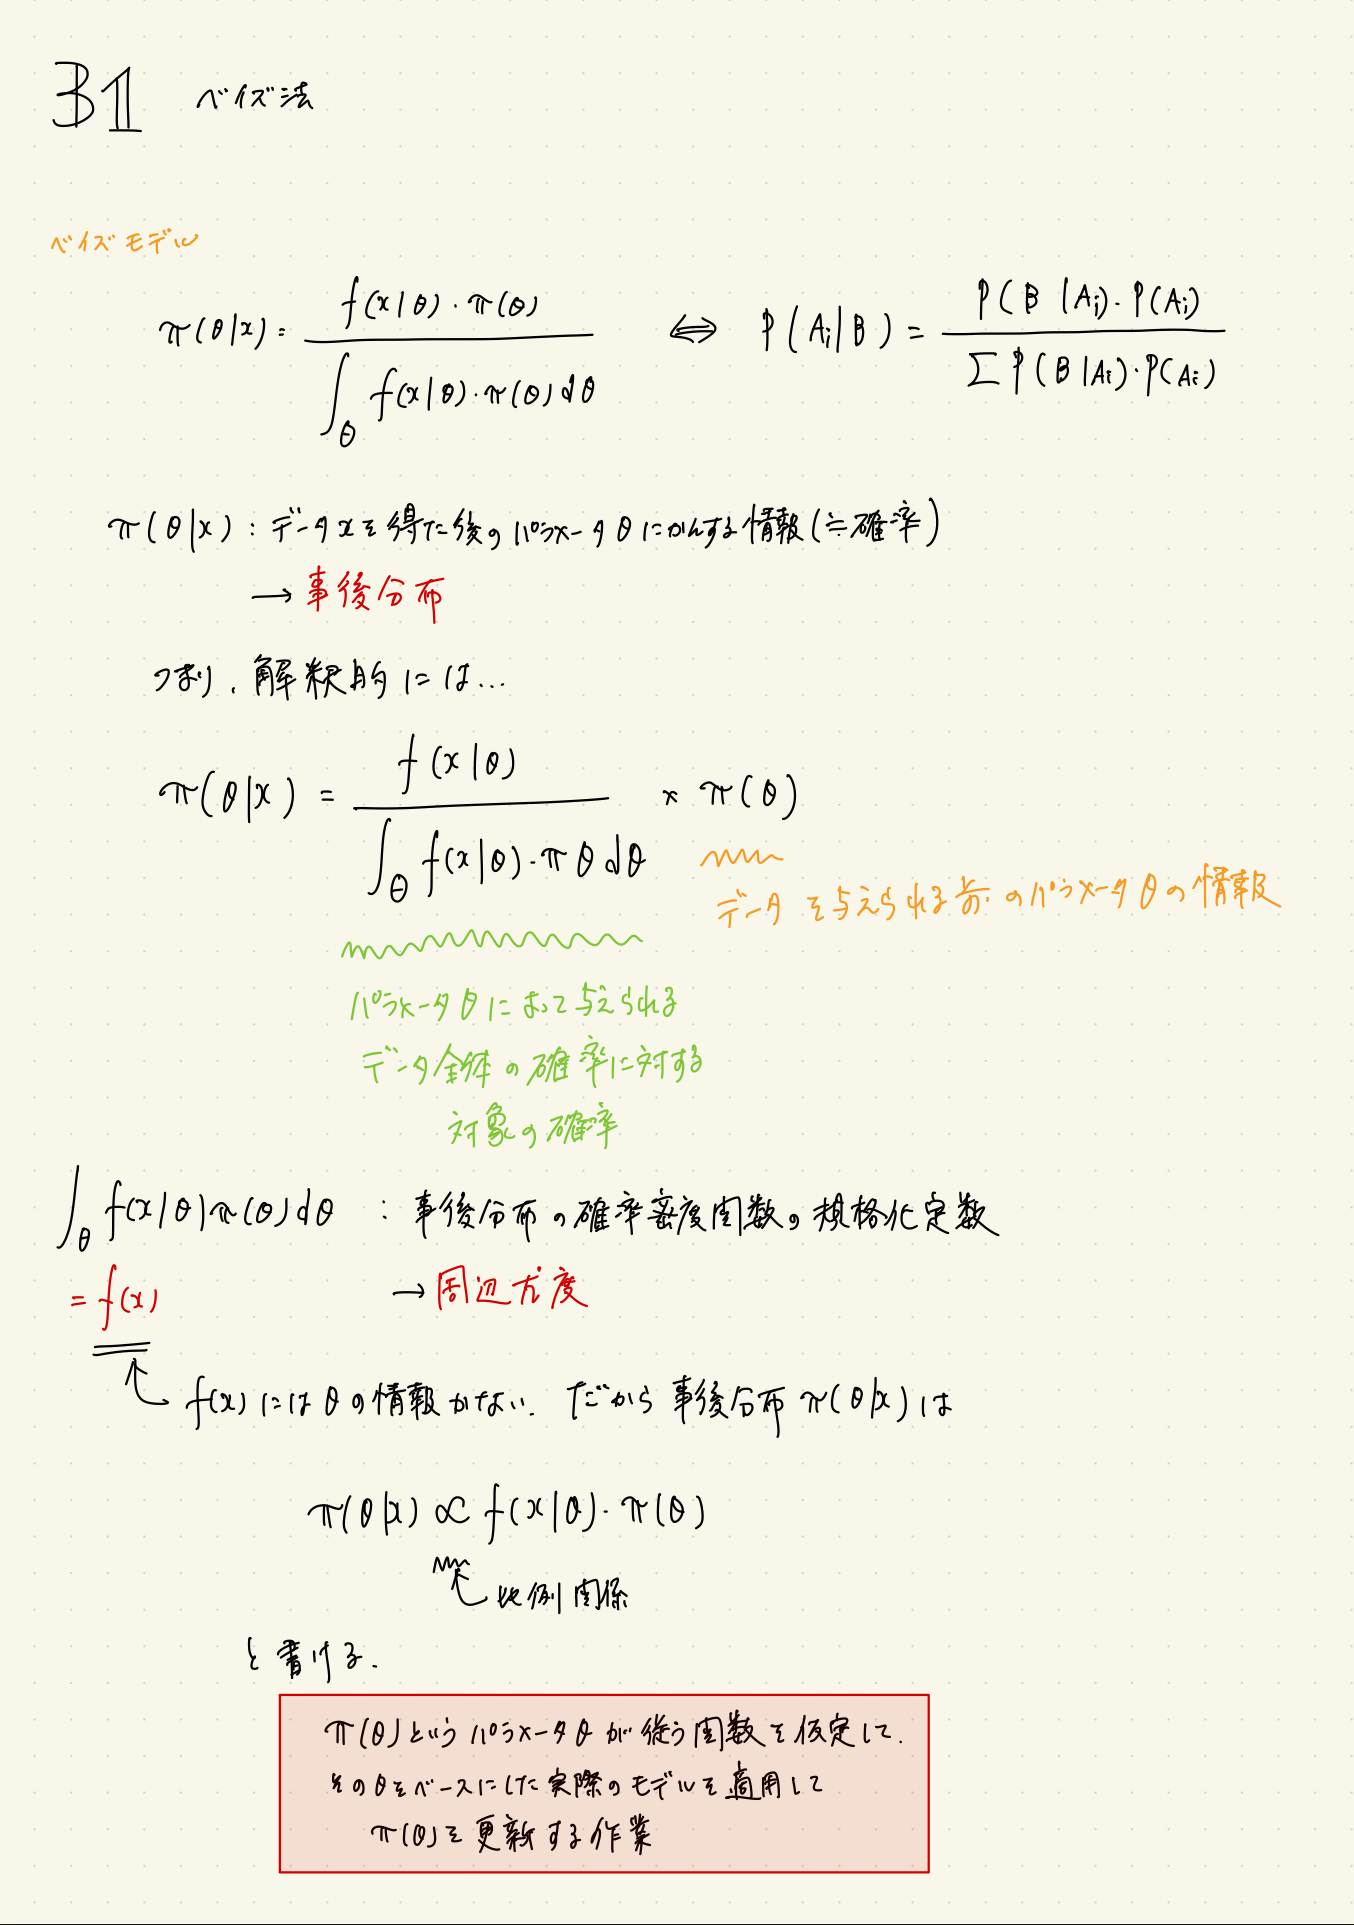 31 ベイズ法
ベイズモデル
π(θ|x) = f(x|θ)・π(θ) / ∫_Θ f(x|θ)・π(θ)dθ ⇔ P(Ai|B) = P(B|Ai)・P(Ai) / Σ P(B|Ai)・P(Ai)
π(θ|x) : データxを得た後のパラメータθにかんする情報(≒確率)
→ 事後分布
つまり、解釈的には...
π(θ|x) = f(x|θ) / ∫_Θ f(x|θ)・πθdθ × π(θ)
データを与えられる前のパラメータθの情報
パラメータθによって与えられる
データ全体の確率に対する
対象の確率
∫_θ f(x|θ)π(θ)dθ : 事後分布の確率密度関数の規格化定数
= f(x) → 周辺尤度
f(x)にはθの情報がない. だから事後分布π(θ|x)は
π(θ|x) ∝ f(x|θ)・π(θ)
比例関係
と書ける.
π(θ)というパラメータθが従う関数を仮定して、
そのθをベースにした実際のモデルを適用して
π(θ)を更新する作業